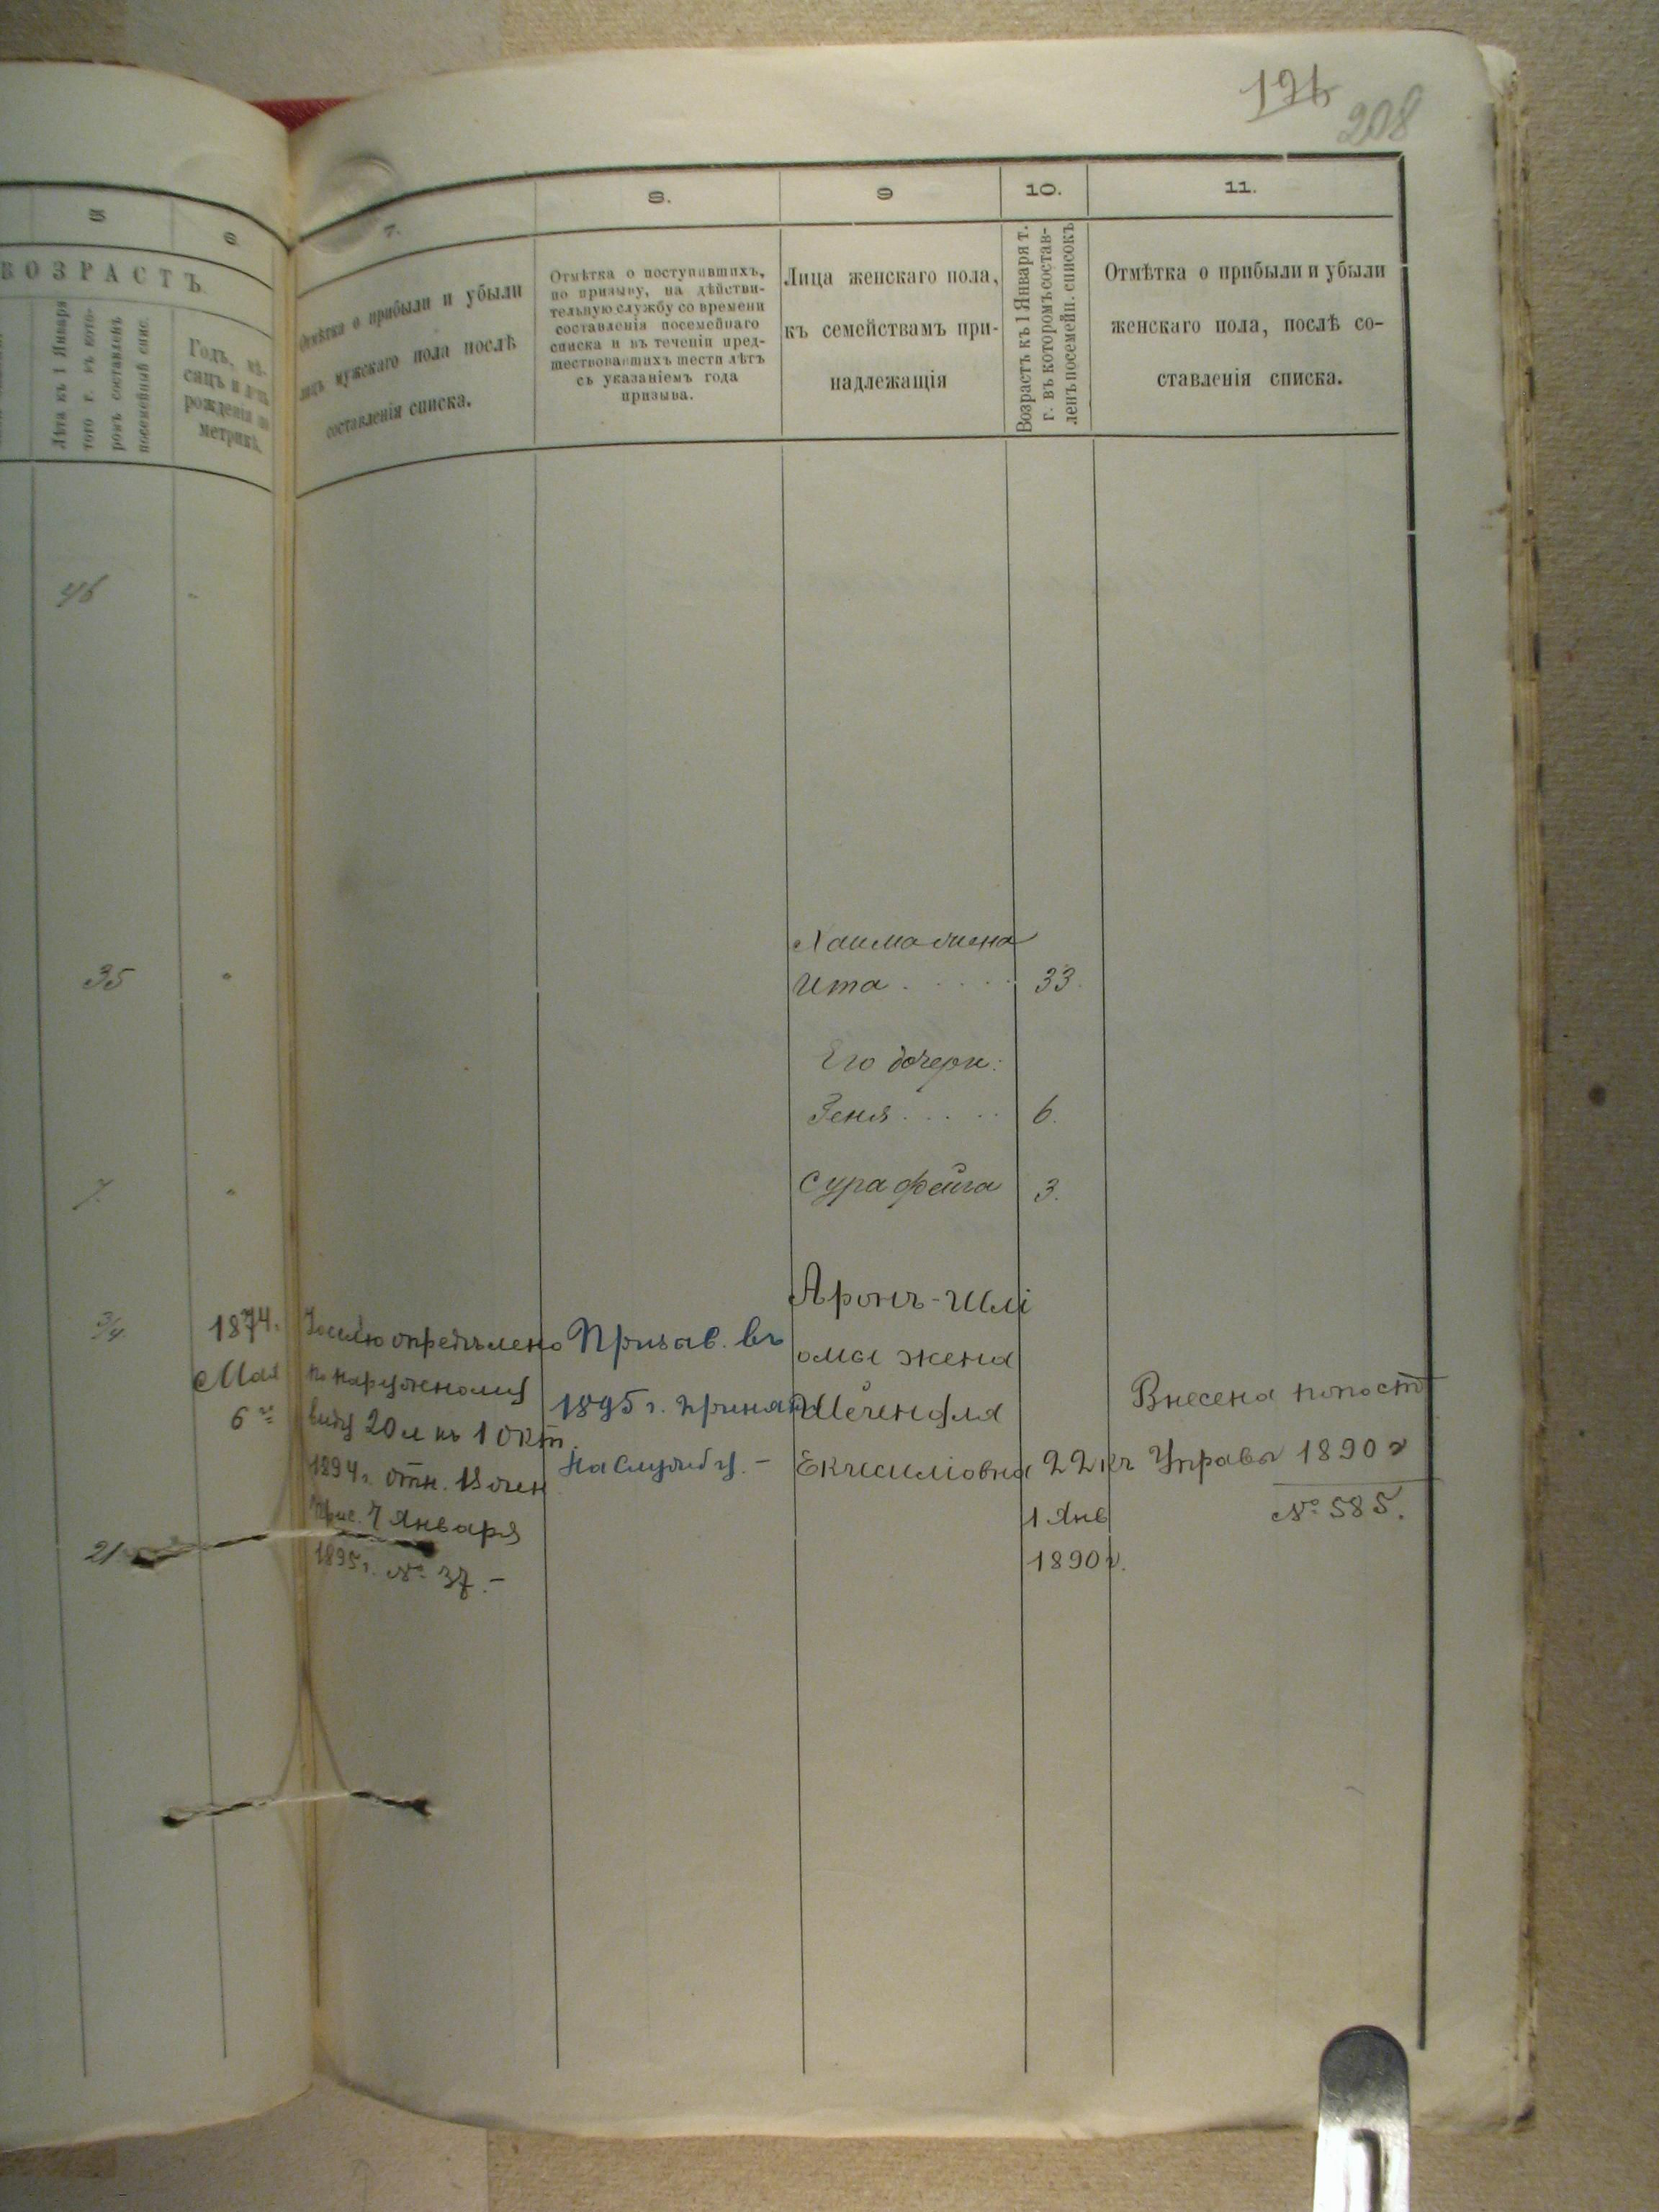 126
208
5
6
7.
8.
9
10.
11.
ВОЗРАСТЪ
Лѣта къ 1 Января
того г. въ кото-
ромъ составленъ
посемейный спис.
Годъ, мѣ-
сяцъ и день
рожденія по
метрикѣ.
Отмѣтка о прибыли и убыли
лицъ мужскаго пола послѣ
составленія списка.
Отмѣтка о поступившихъ,
по призыву, на дѣйстви-
тельную службу со времени
составленія посемейнаго
списка и въ теченіи пред-
шествовавшихъ шести лѣтъ
съ указаніемъ года
призыва.
Лица женскаго пола,
къ семействамъ при-
надлежащія
Возрастъ къ 1 Января т.
г. въ которомъ состав-
ленъ посемейн. списокъ
Отмѣтка о прибыли и убыли
женскаго пола, послѣ со-
ставленія списка.
46
Хаима жена
35
Ита 33.
Его дочери:
Геня 6.
7.
Сура Фейга 3.
3/4
21
1874.
Мая
6
опредѣлено
по наружному
виду 20 л къ 1 Окт
1894 г. отн.
Прис. 7 Января
1895 г. № 37.-
Призыв. въ
1895 г. принятъ
на службу.-
Аронъ-Шлі
омы жена
Шейндля
22 къ
1 Янв
1890 г.
Внесена по пост
Управы 1890 г
№ 585.